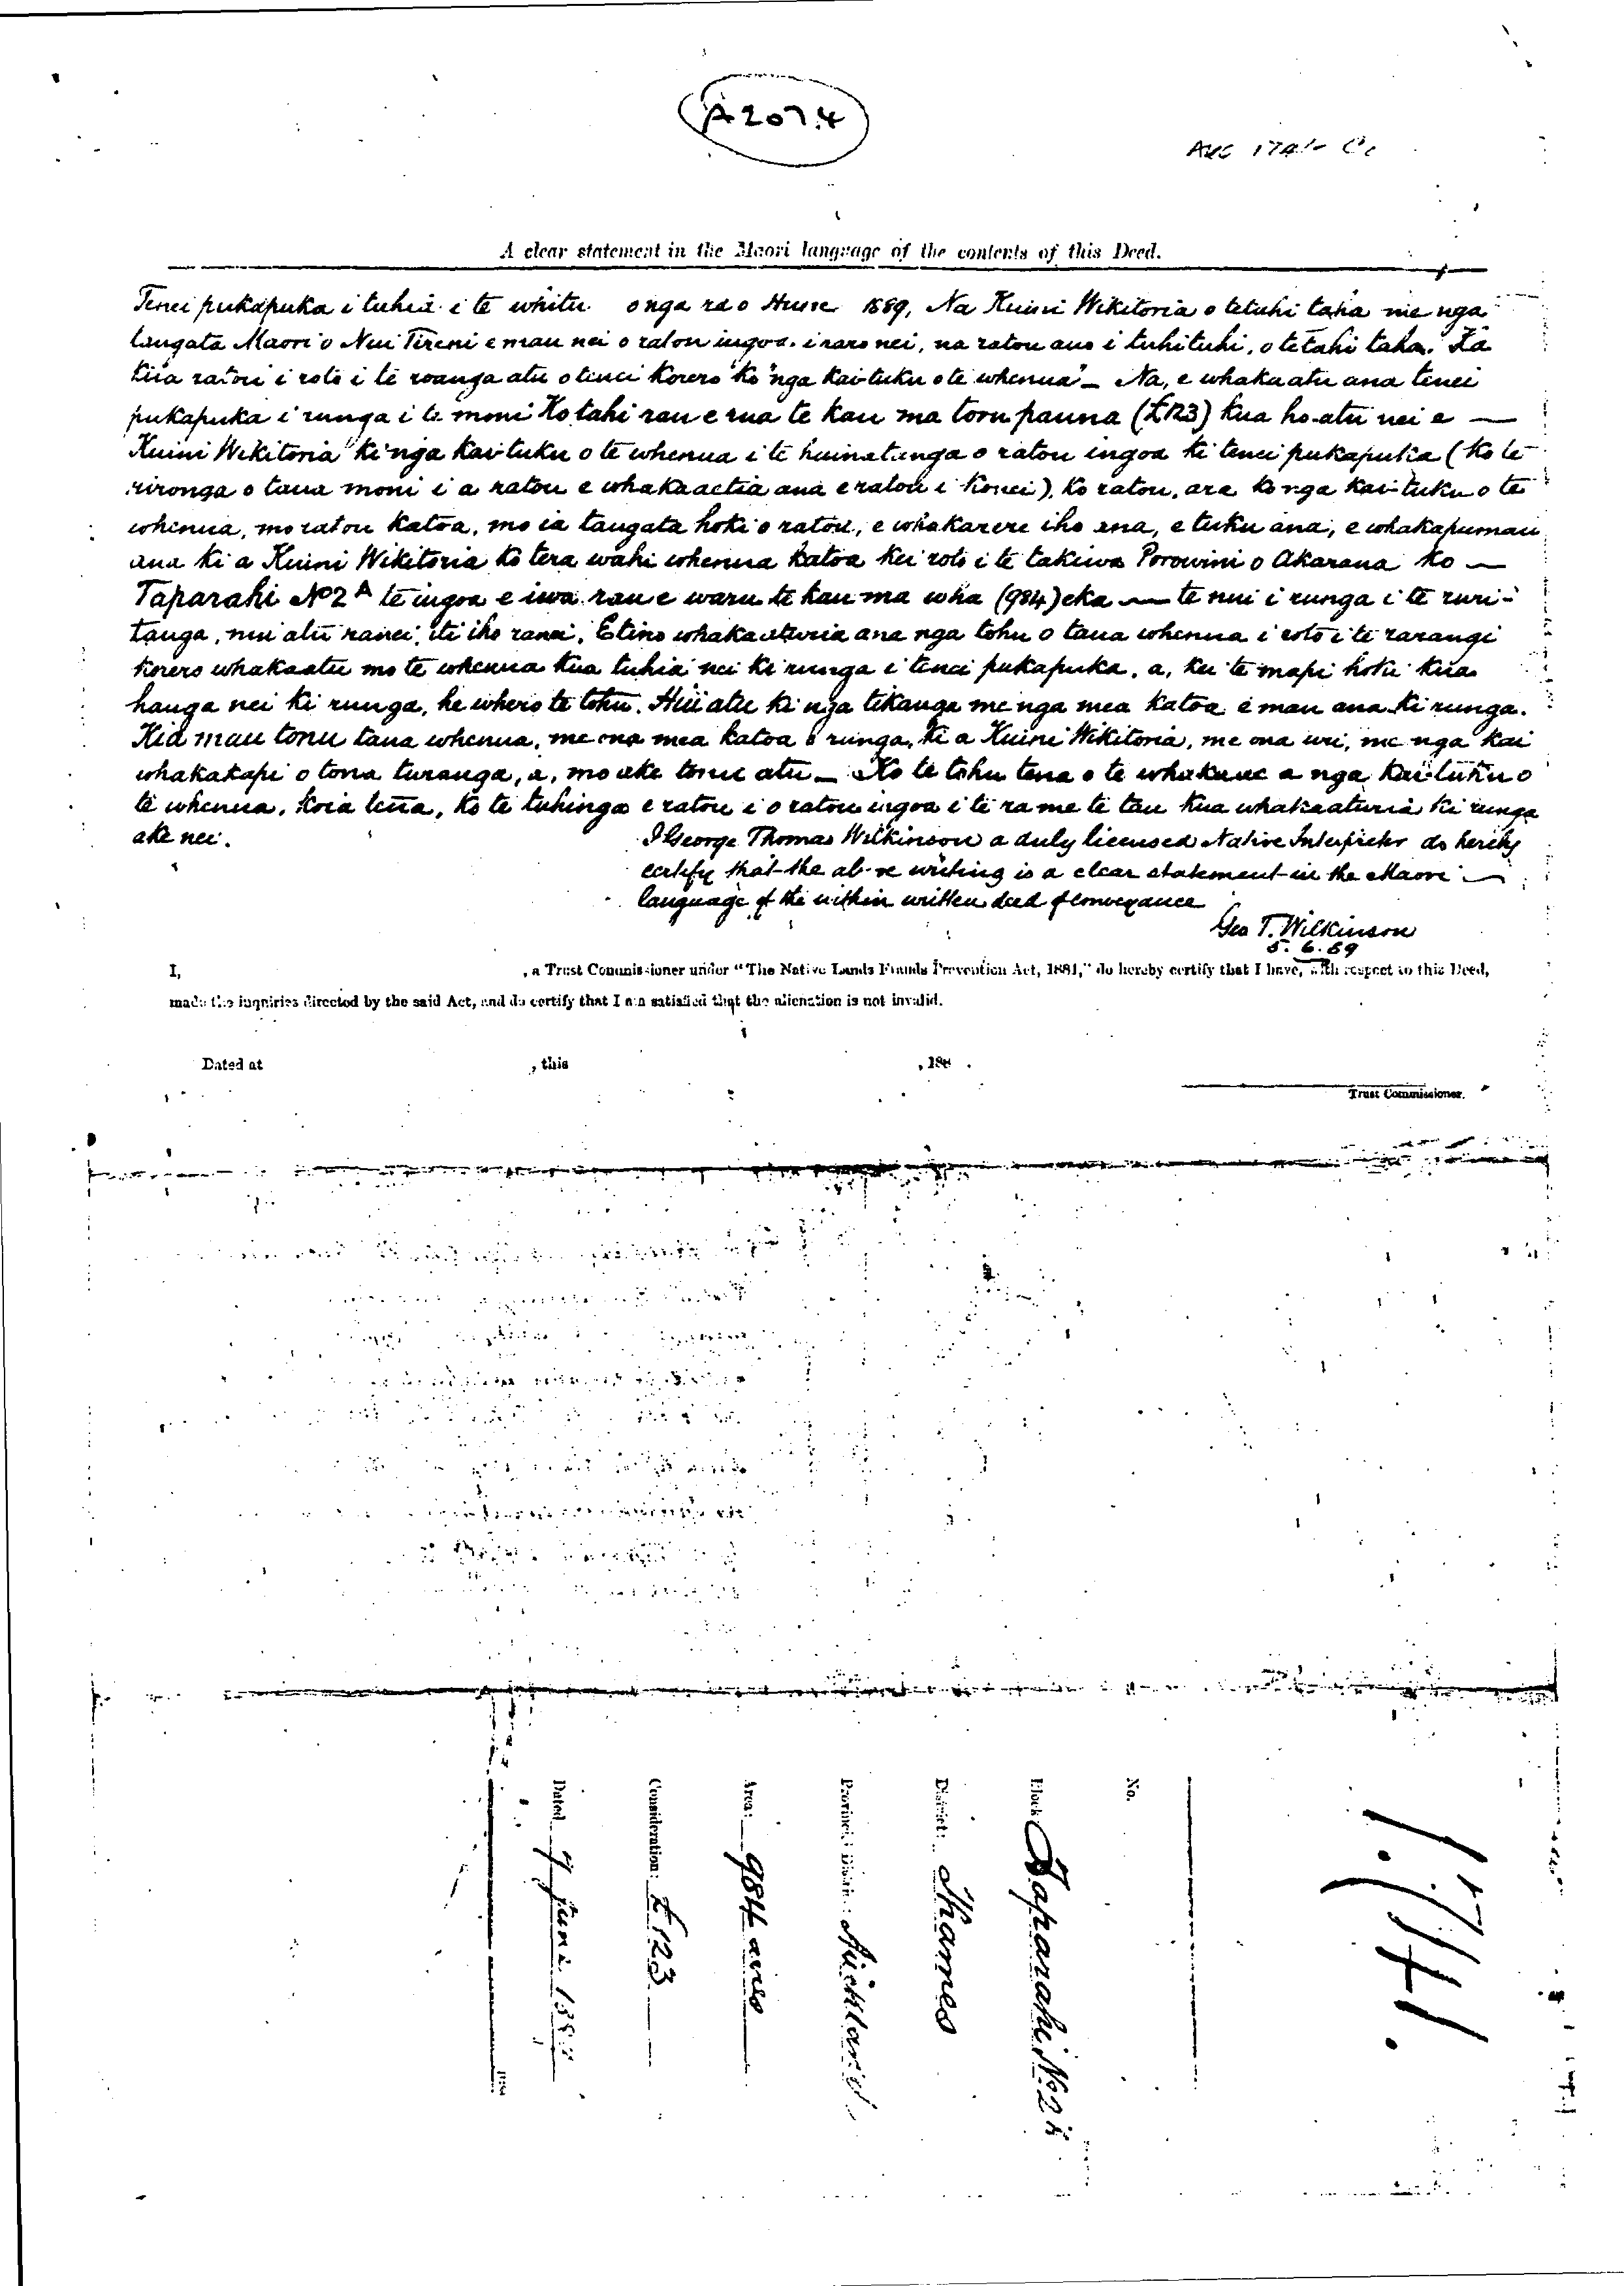 A2074
AUC 1741
A clear statement in the Maori language of the contents of this Deed.
Tenei pukapuka i tuhia i te whitu o nga ra o Hune 1889, Na Kuini Wikitoria o tetahi taha me nga
tangata Maori o Nui Tireni e mau nei o ratou ingoa i raro nei, na ratou ano i tuhituhi, o tetahi taha. Ka
tiia ratou i roto i te roanga atu o tenei korero "ko nga kai-tuku o te whenua" — Na, e whakaatu ana tenei
pukapuka i runga i te moni Kotahi rau e rua te kau ma toru pauna (£123) kua ho-atu nei e —
Kuini Wikitoria ki nga kai-tuku o te whenua i te hainatanga o ratou ingoa ki tenei pukapuka (ko te
rironga o taua moni i a ratou e whakaaetia ana e ratou i konei), ko ratou, ara ko nga kai-tuku o te
whenua, mo ratou katoa, mo ia tangata hoki o ratou, e whakarere iho ana, e tuku ana, e whakapumau
ana ki a Kuini Wikitoria ko tera wahi whenua katoa kei roto i te takiwa Porowini o Akarana ko —
Taparahi No 2A te ingoa e iwa rau e waru te kau ma wha (984) eka — te nui i runga i te ruri-
tanga, nui atu ranei, iti iho ranei, Etino whakaaturia ana nga tohu o taua whenua i roto i te rarangi
korero whakaatu mo te whenua kua tuhia nei ki runga i tenei pukapuka, a, kei te mapi hoki kua
hanga nei ki runga, he whero te tohu. Hui atu ki nga tikanga me nga mea katoa e mau ana ki runga.
Kia mau tonu taua whenua, me ona mea katoa o runga, ki a Kuini Wikitoria, me ona uri, me nga kai
whakakapi o tona turanga, a, mo ake tonu atu — Ko te tohu tena o te whakaae a nga kai tuku o
te whenua, koia tena, ko te tuhinga e ratou i o ratou ingoa i te ra me te tau kua whakaaturia ki runga
ake nei.
I George Thomas Wilkinson a duly licensed Native Interpreter do hereby
certify that the above writing is a clear statement in the Maori —
language of the within written deed of conveyance
Geo T. Wilkinson
5. 6. 89
I, , a Trust Commissioner under "The Native Lands Frauds Prevention Act, 1881," do hereby certify that I have, with respect to this Deed,
made the inquiries directed by the said Act, and do certify that I am satisfied that the alienation is not invalid.
Dated at , this , 188 .
Trust Commissioner.
1741.
No.
Block: Taparahi No 2A
District: Thames
Province: Auckland
Area: 984 acres
Consideration: £123
Dated 7 June 188